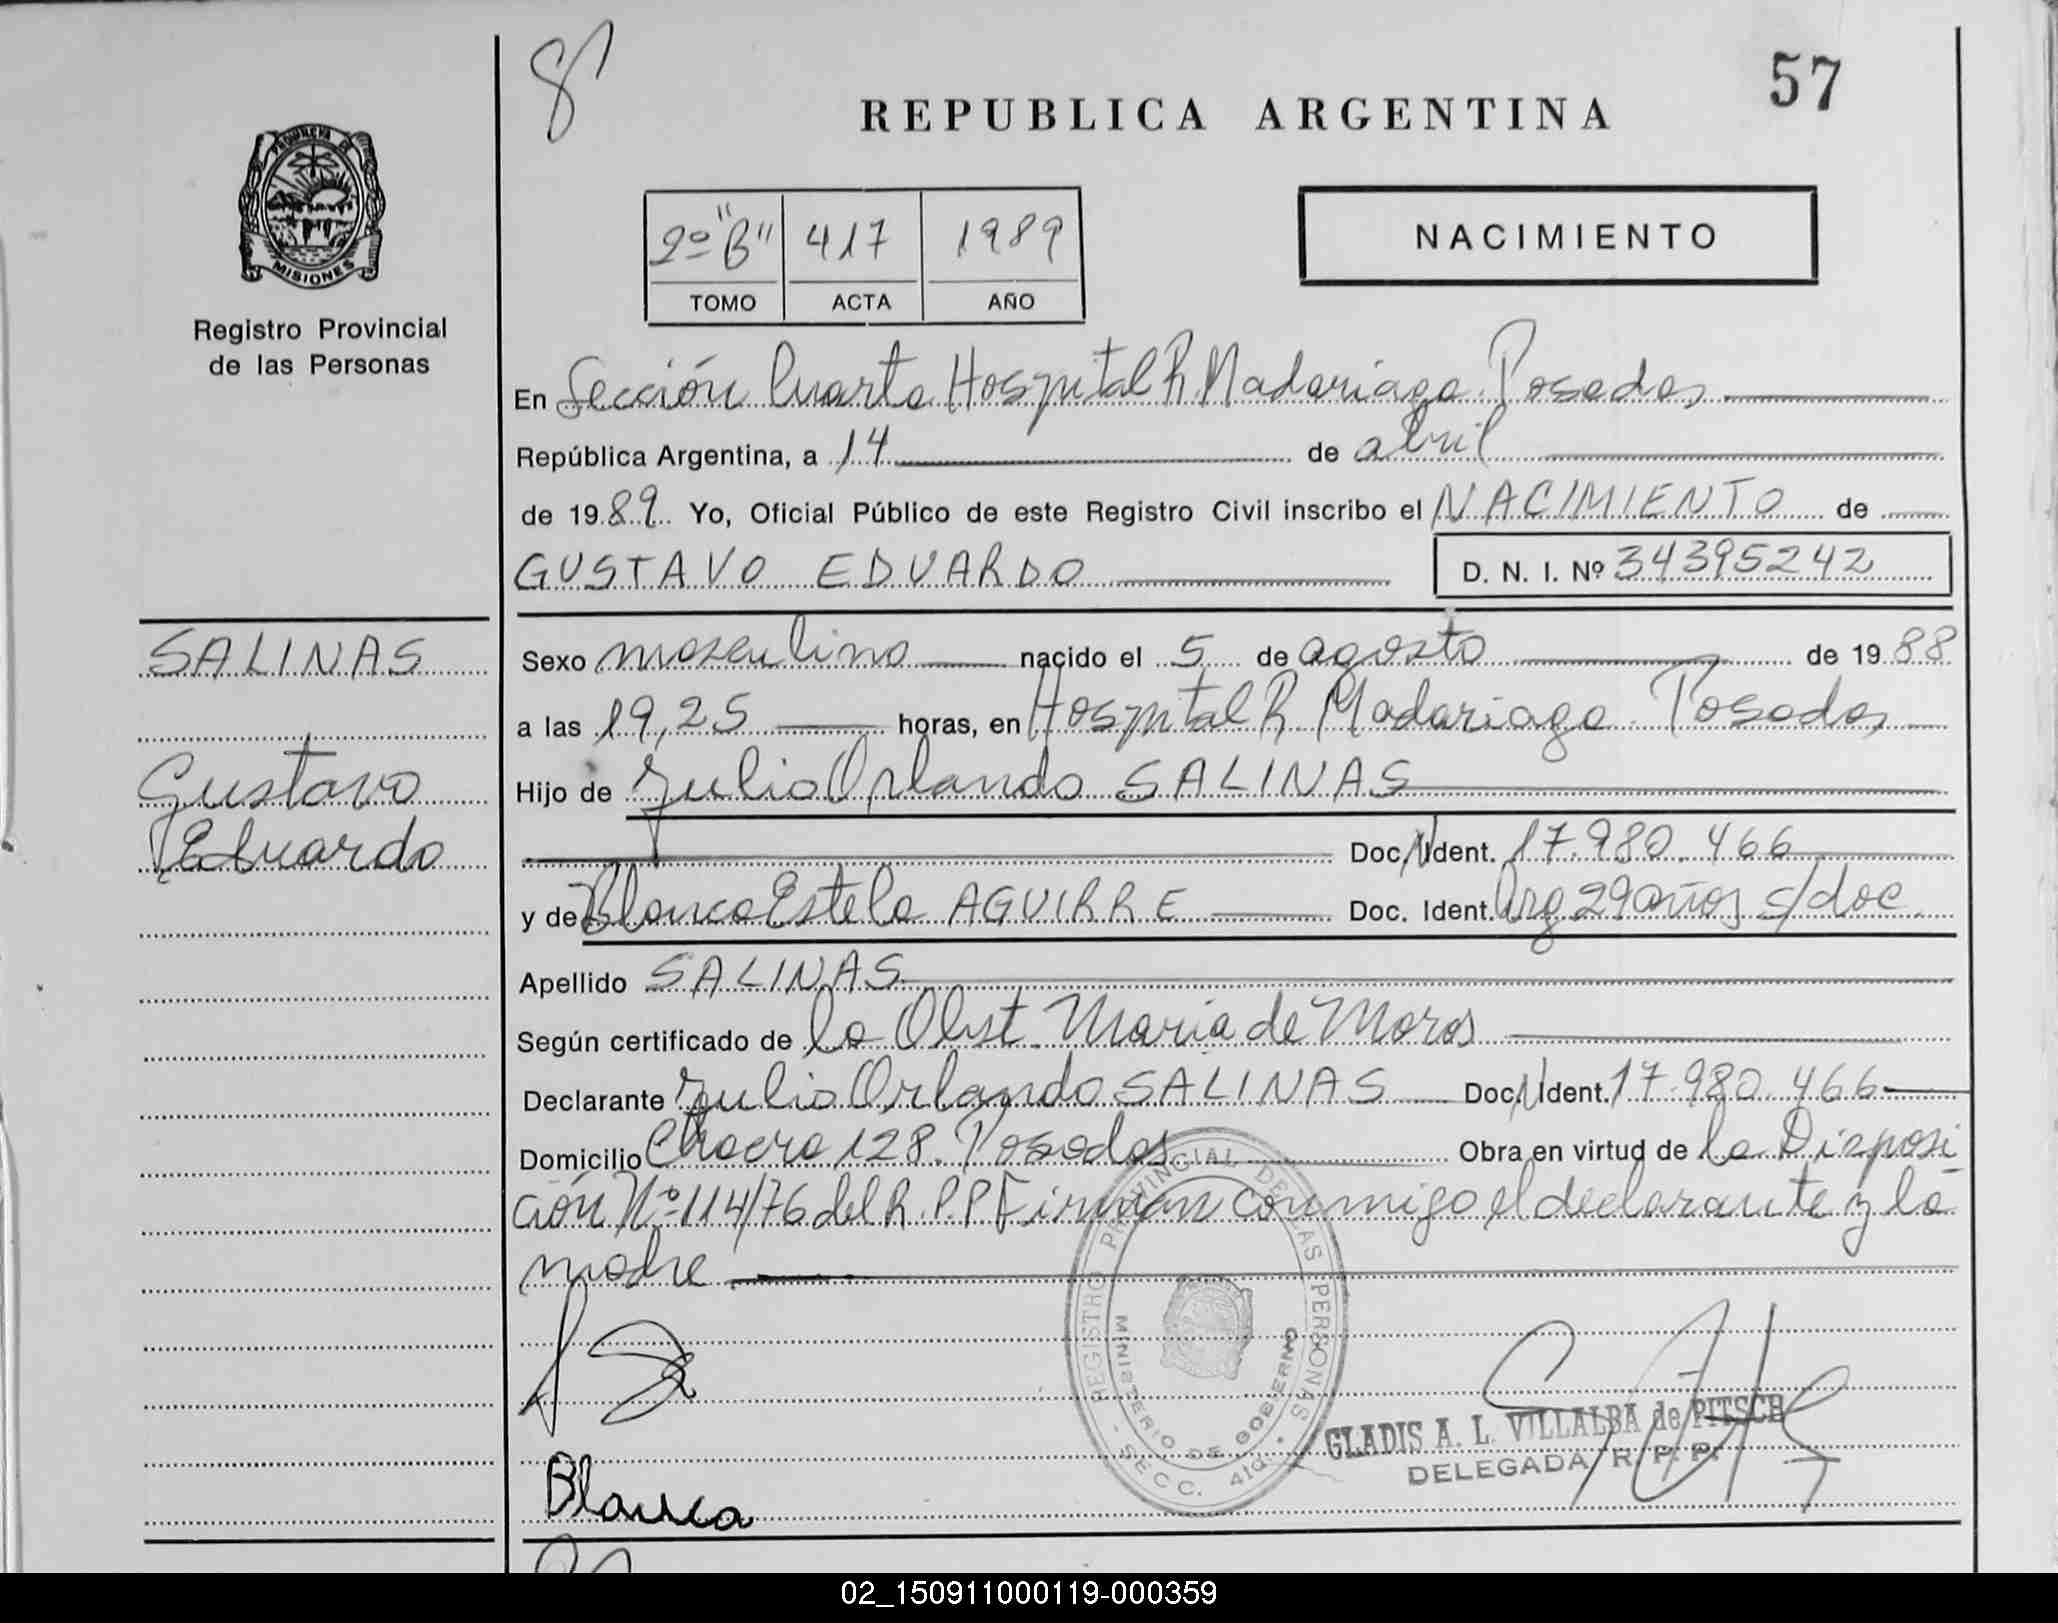 57
REPUBLICA ARGENTINA
PROVINCIA DE
MISIONES
Registro Provincial
de las Personas
2º "B" 417 1989
TOMO ACTA AÑO
NACIMIENTO
En Sección Cuarta Hospital R. Madariaga. Posadas
República Argentina, a 14 de abril
de 1989 Yo, Oficial Público de este Registro Civil inscribo el NACIMIENTO de
GUSTAVO EDUARDO D. N. I. Nº 34395242
SALINAS
Gustavo
Eduardo
Sexo masculino nacido el 5 de agosto de 1988
a las 19,25 horas, en Hospital R. Madariaga. Posadas
Hijo de Julio Orlando SALINAS
Doc. N Ident. 17.980.466
y de Blanca Estela AGUIRRE Doc. Ident. Arg 29 años s/doc.
Apellido SALINAS
Según certificado de la Obst. Maria de Moros
Declarante Julio Orlando SALINAS Doc. N Ident. 17.980.466
Domicilio Chacra 128. Posadas Obra en virtud de la Disposi
ción Nº 114/76 del R.P.P Firman conmigo el declarante y la
madre
REGISTRO PROVINCIAL DE LAS PERSONAS
MINISTERIO DE GOBIERNO
- SECC. 4ta. -
GLADIS A. L. VILLALBA de PITSCH
DELEGADA R. P. P.
Blanca
02_150911000119-000359